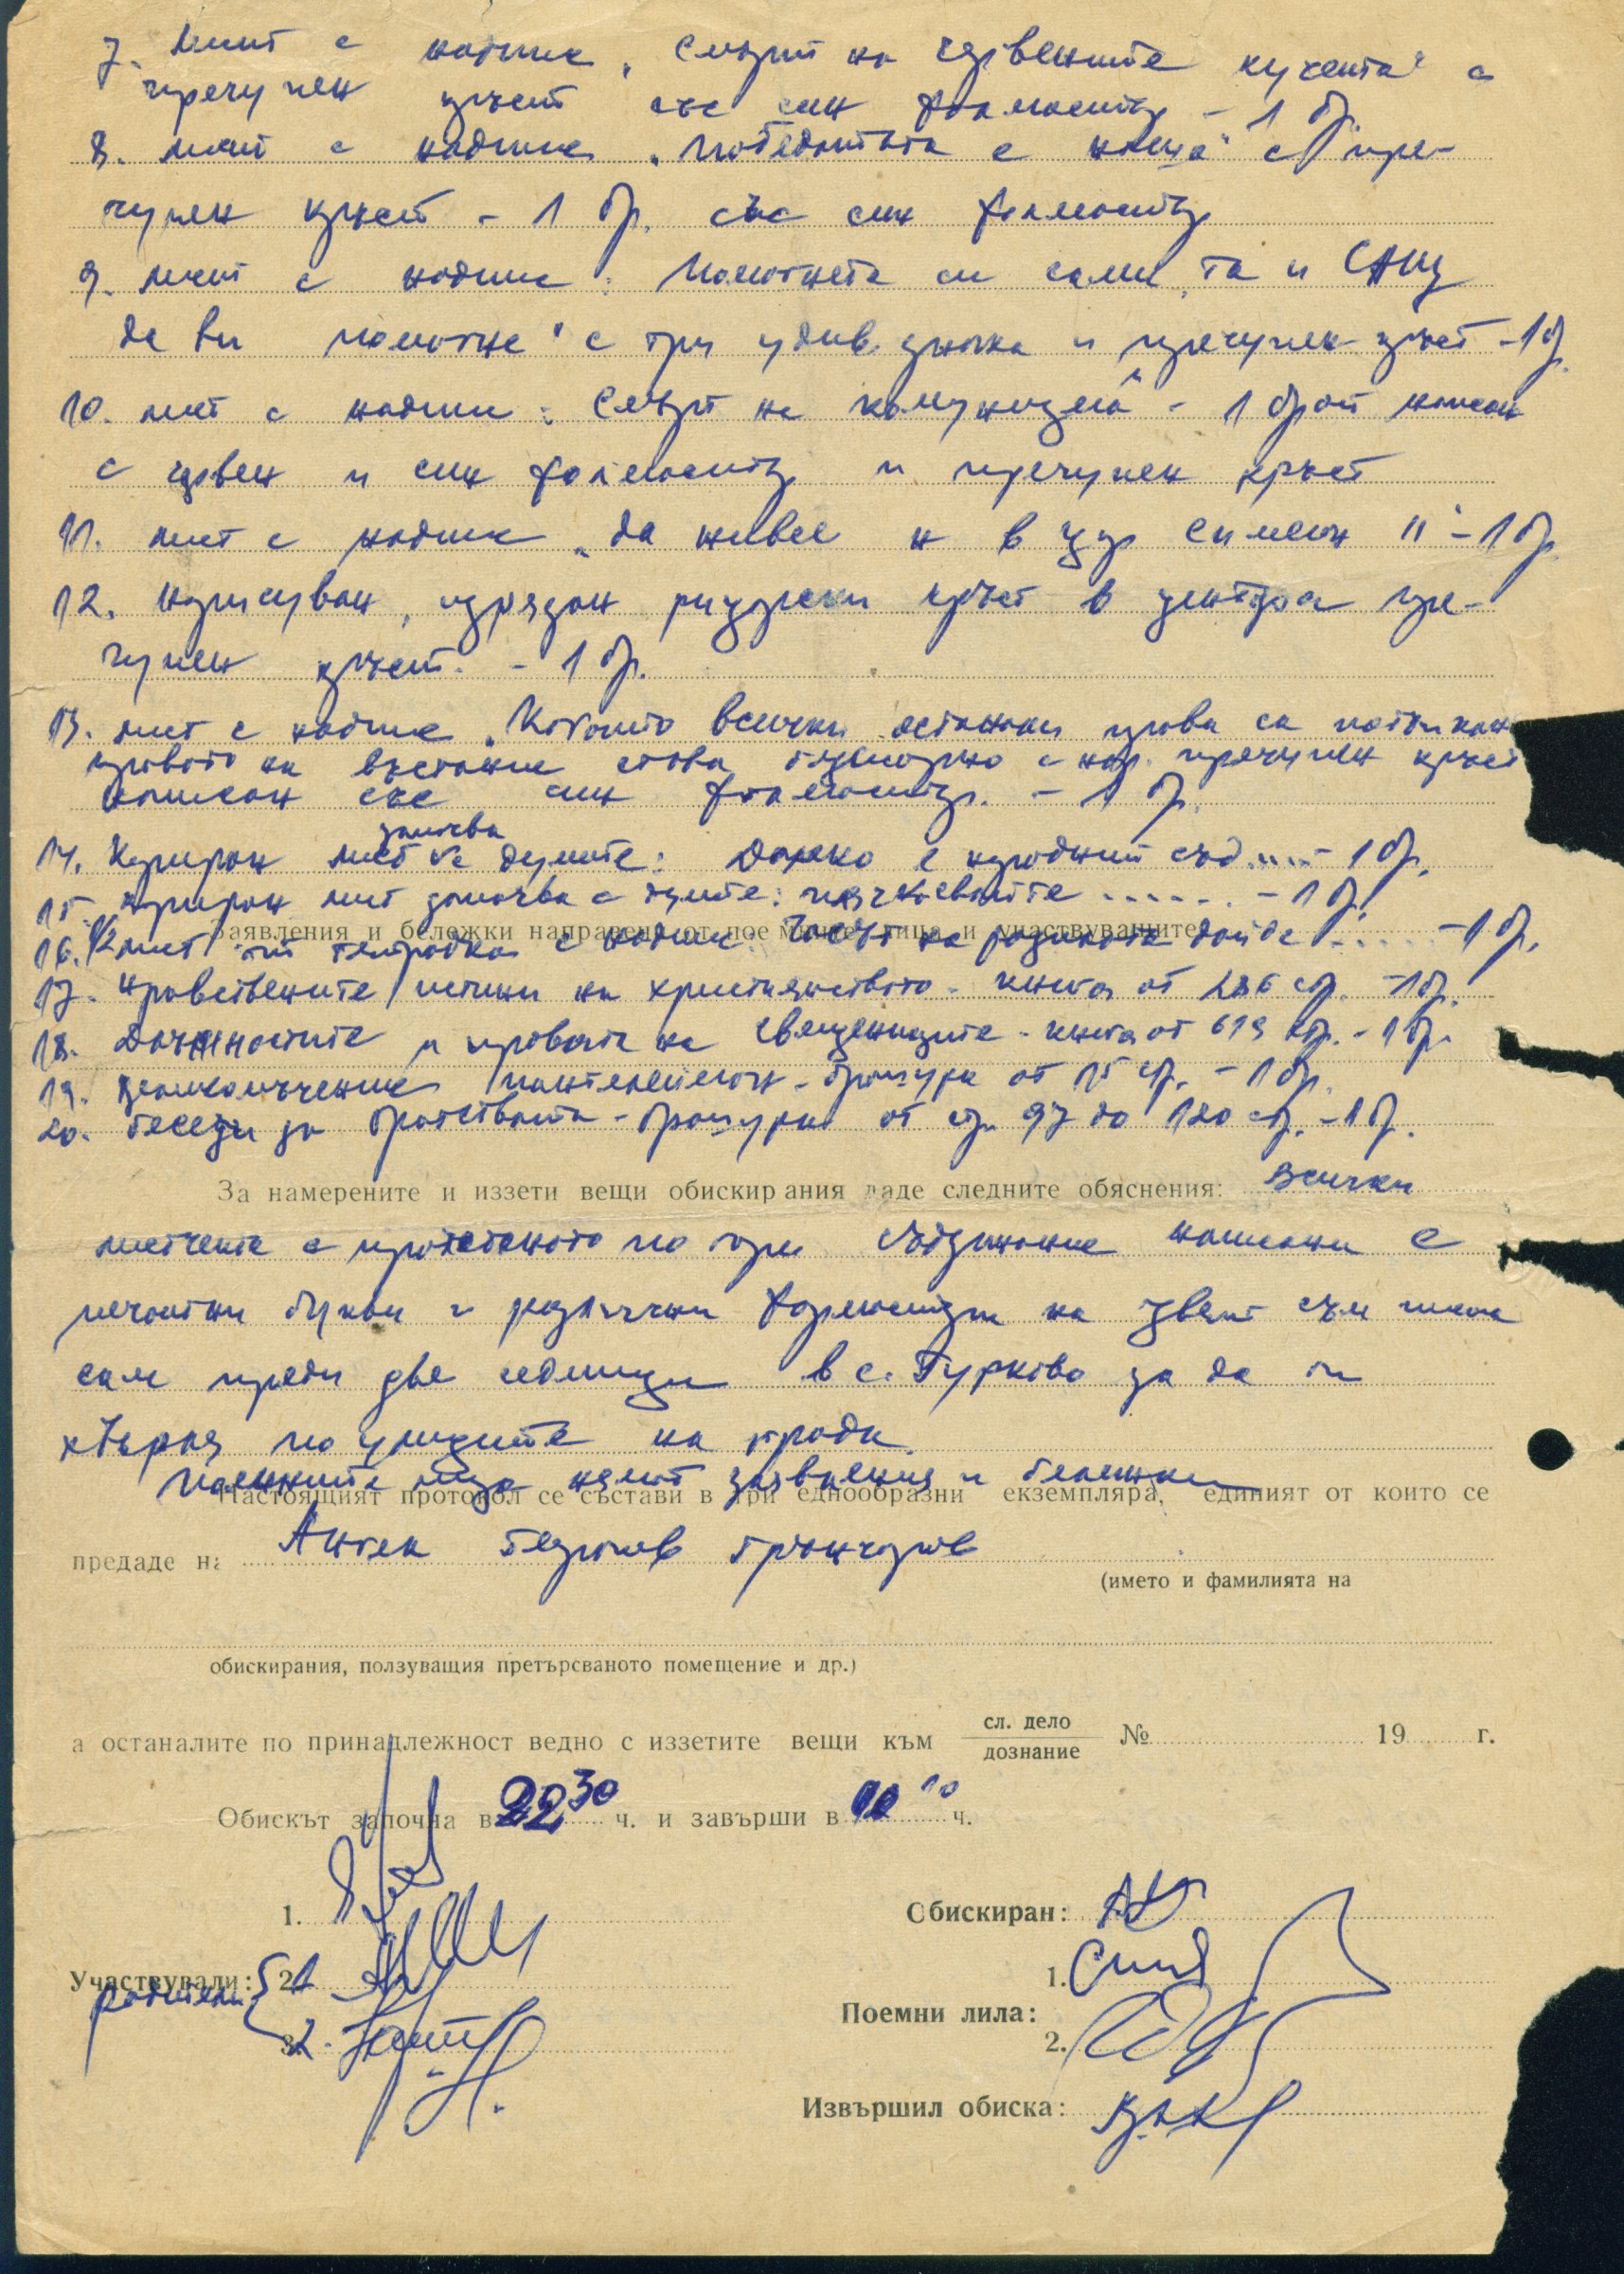 7. Лист с надпис „Смърт на червените кучета" с
пречупен кръст със син фолмастер - 1 бр.
8. лист с надпис „победата е наша" с пре-
чупен кръст - 1 бр. със син фолмастер
9. лист с надпис: Помогнете си сами, та и САЩ
да ви помогне" с три удив. знака и пречупен кръст - 1 бр.
10. лист с надпис: Смърт на комунизма" - 1 брой написан
с червен и син фолмастер и пречупен кръст
11. лист с надпис „Да живее н в цар Симеон II" - 1 бр.
12. Нарисуван, изрязан рицарски кръст в центъра пре-
чупен кръст. - 1 бр.
13. лист с надпис „Когато всички останали права са потъпкани
правото на въстание става безспорно с нар. пречупен кръст
написан със син фолмастер. - 1 бр.
започва
14. Хартиен лист с думите: Далеко е народният съд..... - 1 бр.
15. Хартиен лист започва с думите: ...... - 1 бр.
Заявления и бележки направени от поемните лица и участвуващите
16. 1/2 лист от тетрадка с надпис: Часът на родината дойде!..... - 1 бр.
17. Нравствените истини на християнството - книга от 286 стр. - 1 бр.
18. Длъжностите и правата на свещениците - книга от 619 стр. - 1 бр.
19. Великомъченик Пантелеймон - брошура от 15 стр. - 1 бр.
20. Беседи за братствата - брошура от стр. 97 до 120 стр. - 1 бр.
За намерените и иззети вещи обискирания даде следните обяснения: Всички
листчета с протестното по горе съдържание написани с
печатни букви с различни фолмастри на цвят съм писал
сам преди две седмици в с. Гурково за да ги
хвърля по улиците на града.
Поемните лица нямат заявления и бележки
Настоящият протокол се състави в три еднообразни екземпляра, единият от които се
предаде на Ангел Грънчаров
(името и фамилията на
обискирания, ползуващия претърсваното помещение и др.)
а останалите по принадлежност ведно с иззетите вещи към сл. дело № 19 г.
дознание
Обискът започна в 22 30 ч. и завърши в 10 ч.
1. Обискиран:
Участвували: 2 1. 1.
родители Поемни лила:
3 2. 2.
Извършил обиска: